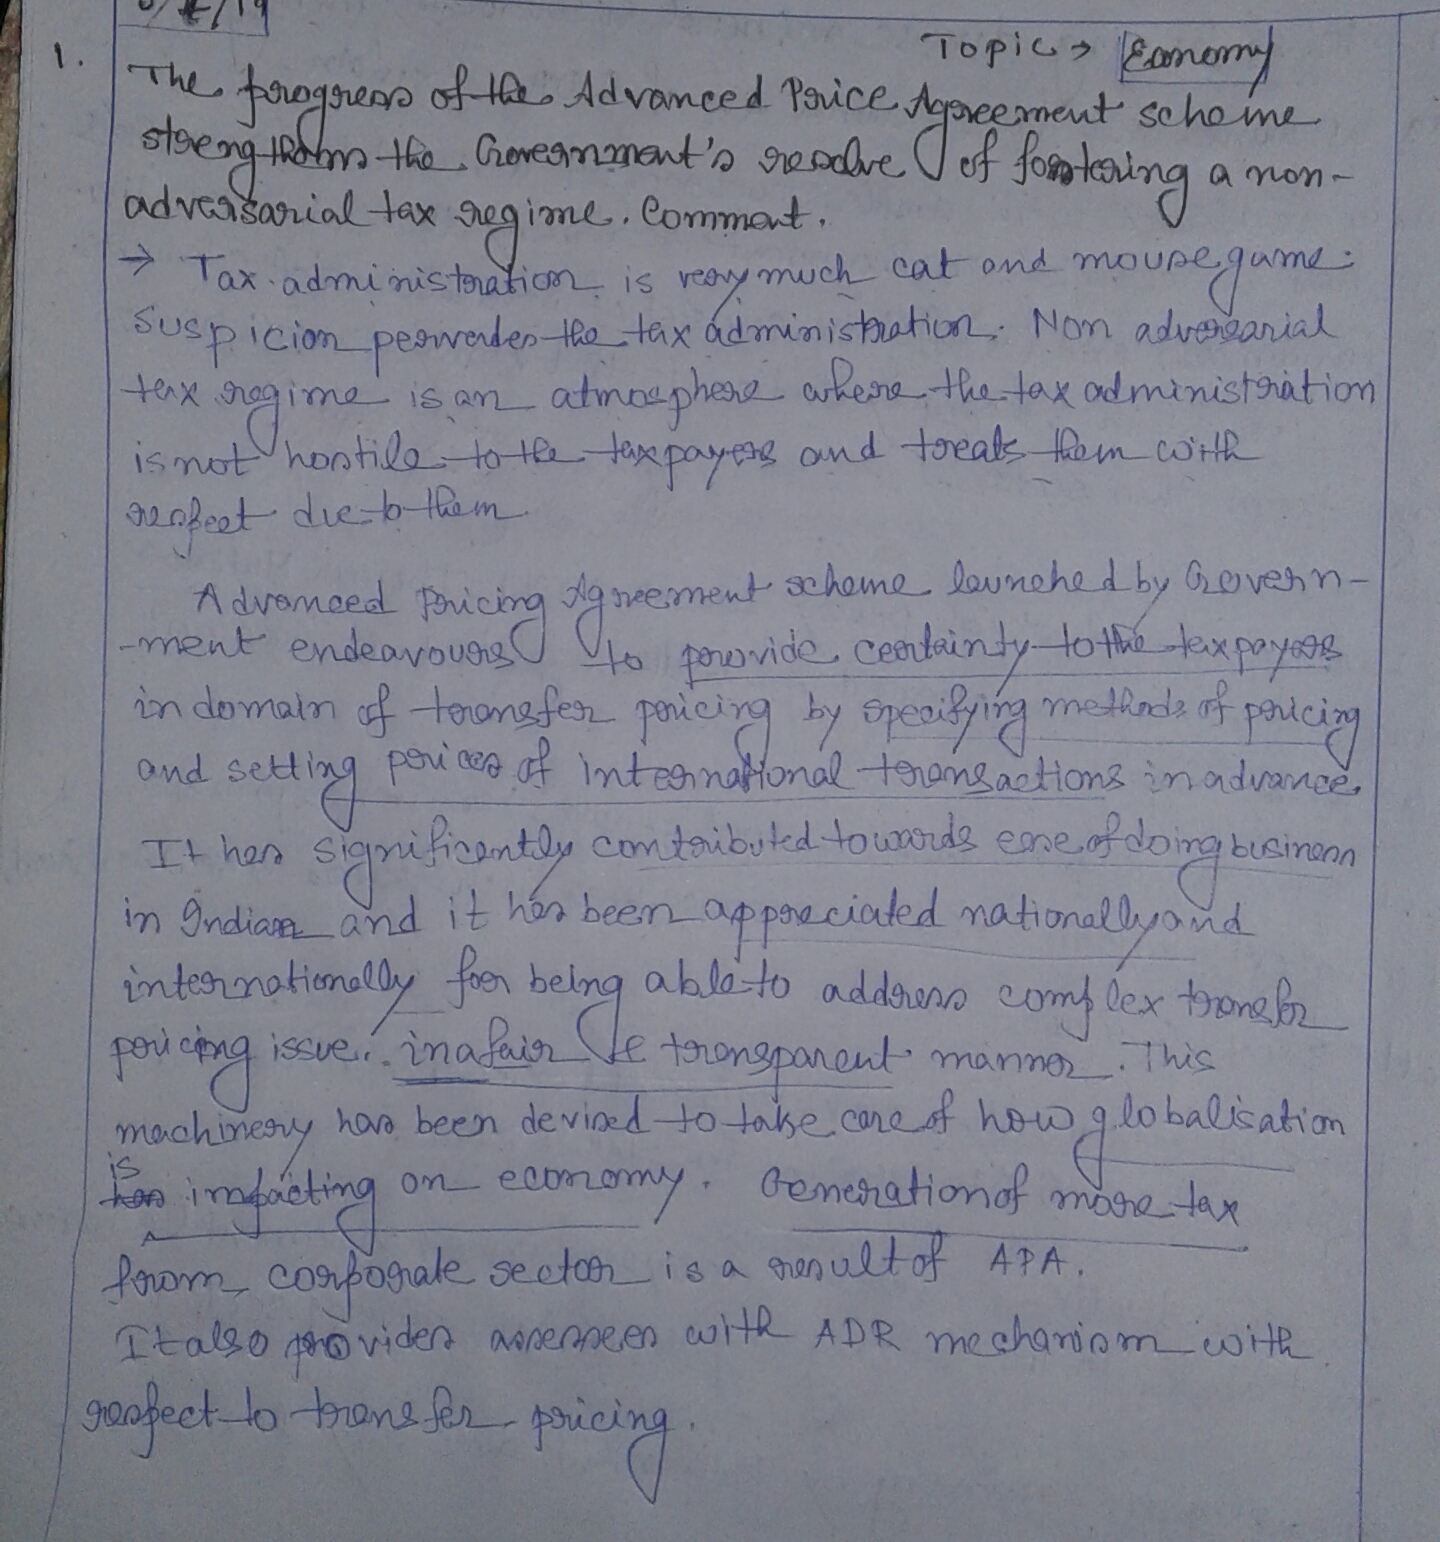 Topic → Economy
1.
The progress of the Advanced Price Agreement scheme
strengthens the Government's resolve of fostering a non-
adversarial tax regime. Comment.
→ Tax administration is very much cat and mouse game.
Suspicion pervades the tax administration. Non adversarial
tax regime is an atmosphere where the tax administration
is not hostile to the taxpayers and treats them with
respect due to them
Advanced Pricing Agreement scheme launched by Govern-
-ment endeavours to provide certainty to the taxpayers
in domain of transfer pricing by specifying methods of pricing
and setting prices of international transactions in advance.
It has significantly contributed towards ease of doing business
in India and it has been appreciated nationally and
internationally for being able to address complex transfer
pricing issue. in a fair & transparent manner. This
machinery has been devised to take care of how globalisation
is
has impacting on economy. Generation of more tax
from corporate sector is a result of APA.
It also provides assessees with ADR mechanism with
respect to transfer pricing.